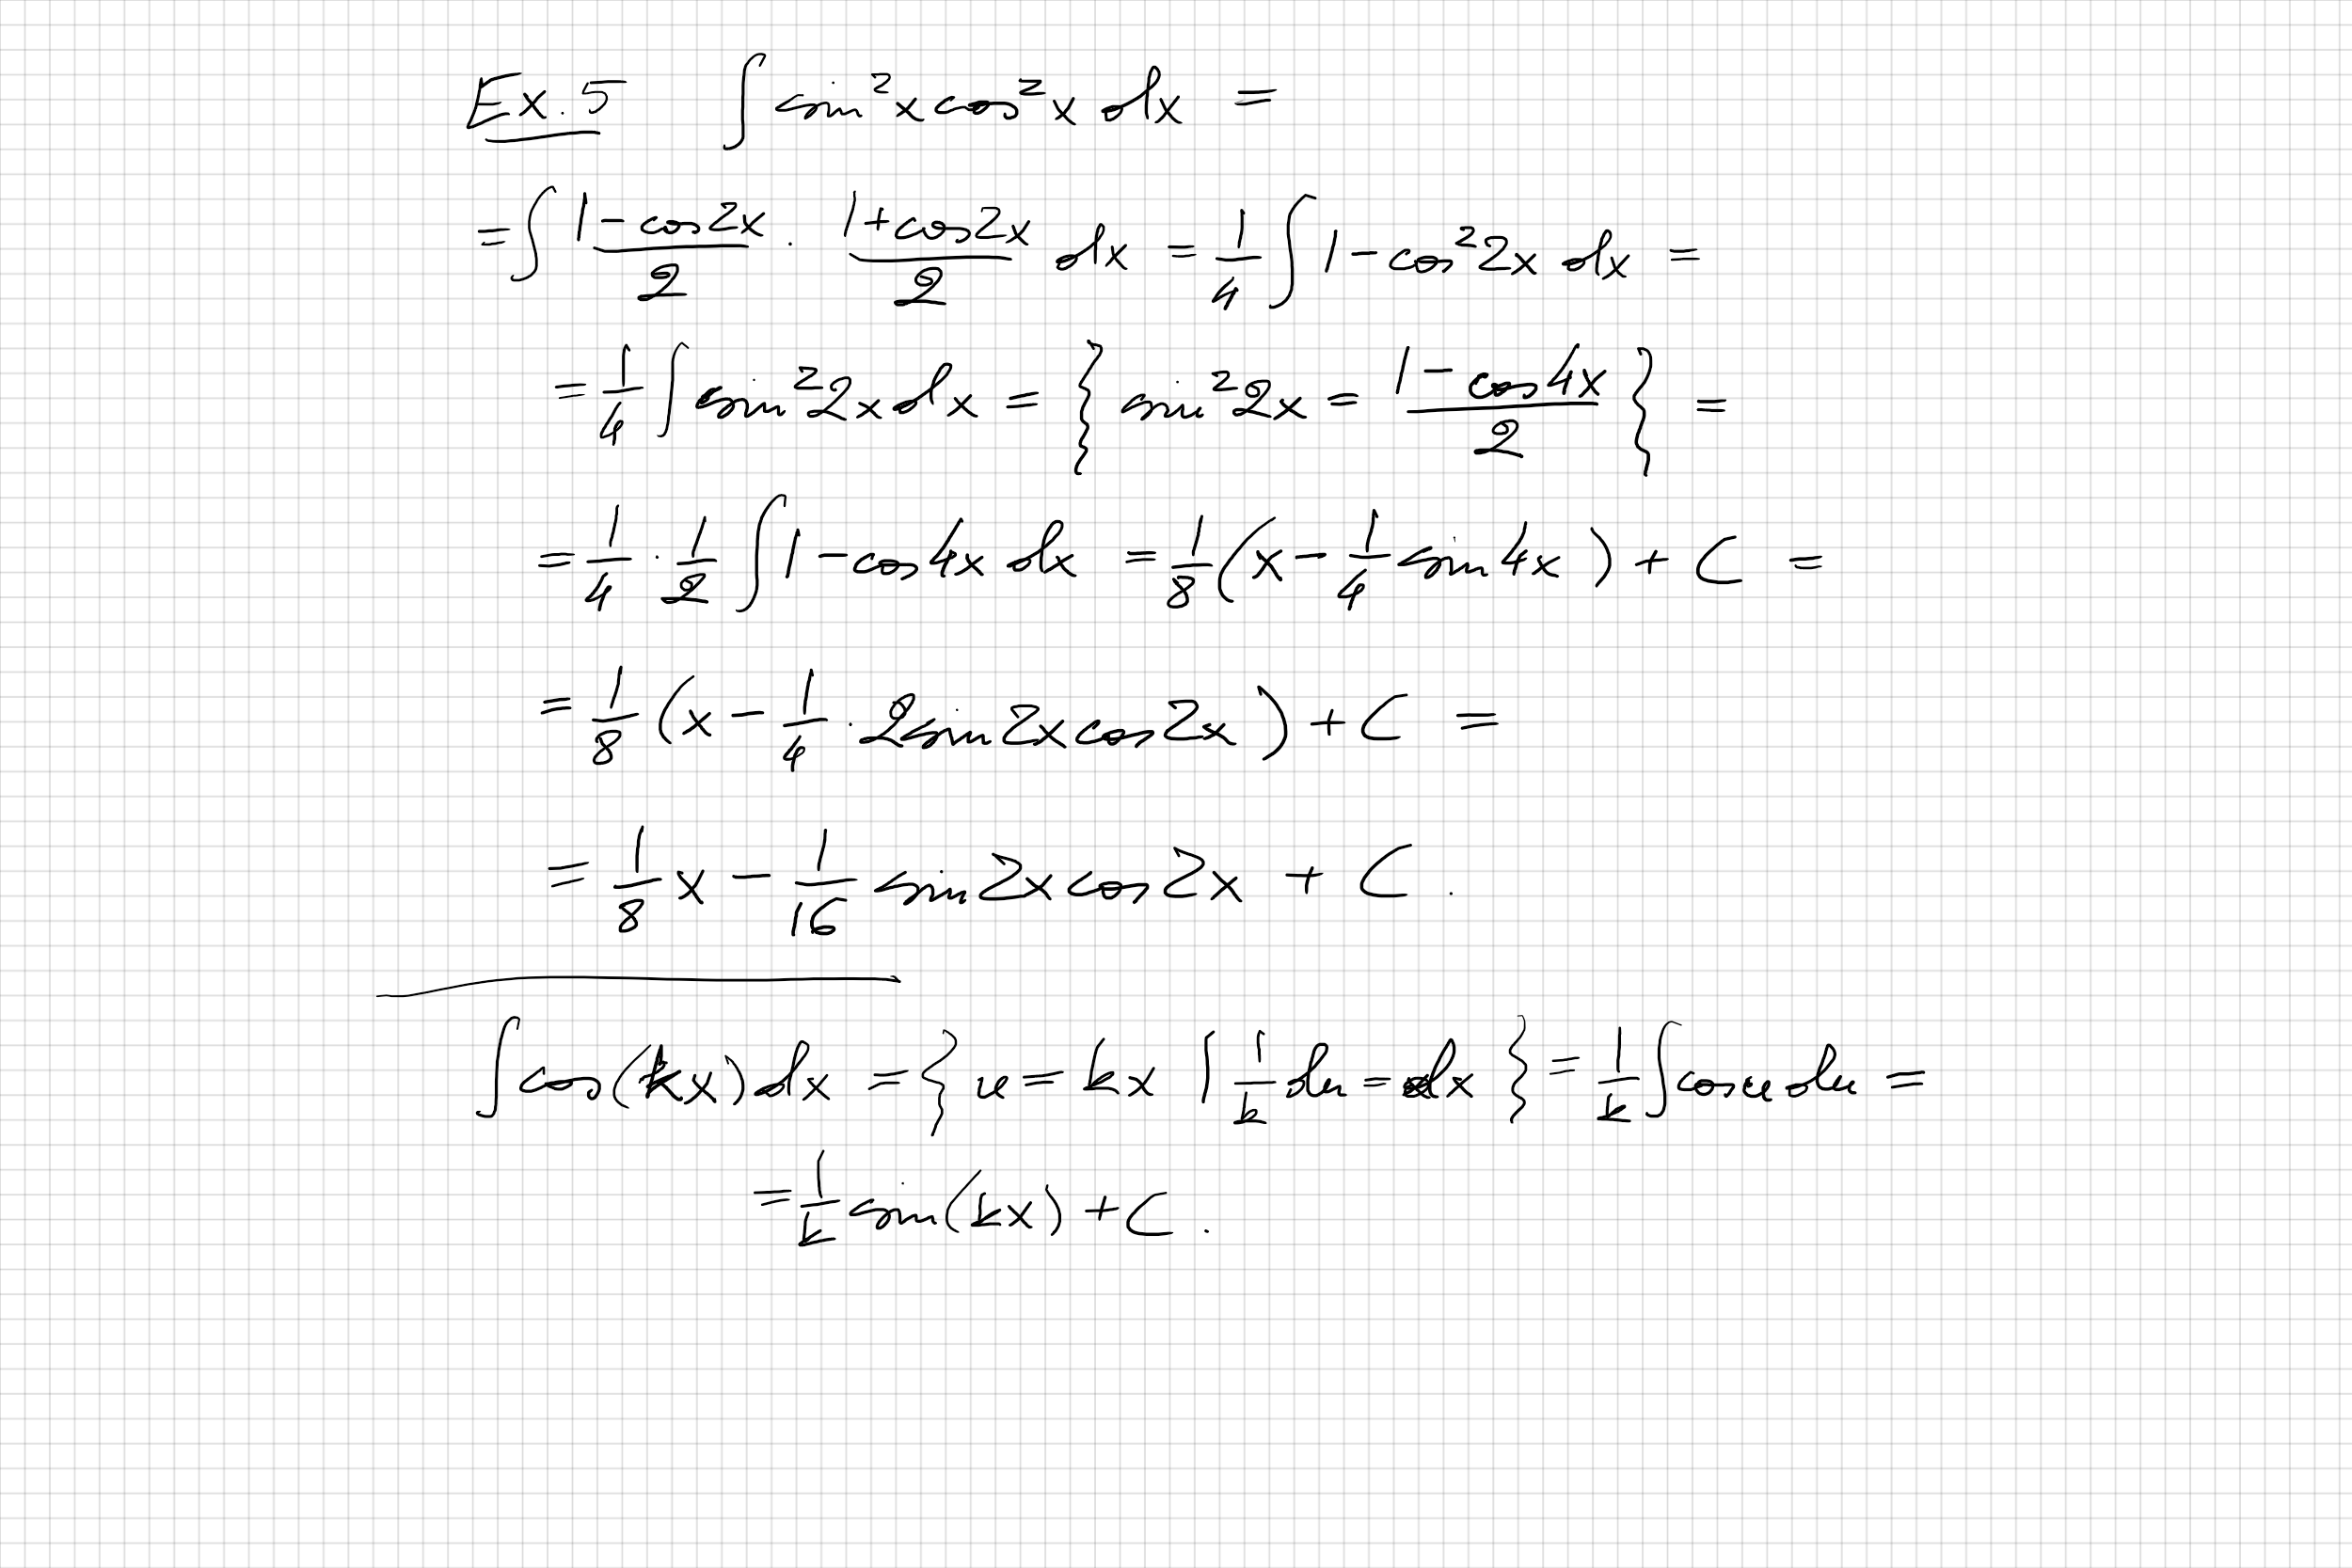 Ex. 5 ∫ sin²x cos²x dx =
= ∫ (1 - cos2x)/2 · (1 + cos2x)/2 dx = 1/4 ∫ 1 - cos²2x dx =
= 1/4 ∫ sin²2x dx = { sin²2x = (1 - cos4x)/2 } =
= 1/4 · 1/2 ∫ 1 - cos4x dx = 1/8 (x - 1/4 sin4x) + C =
= 1/8 (x - 1/4 · 2sin2x cos2x) + C =
= 1/8 x - 1/16 sin2x cos2x + C .
∫ cos(kx) dx = { u = kx | 1/k du = dx } = 1/k ∫ cosu du =
= 1/k sin(kx) + C .